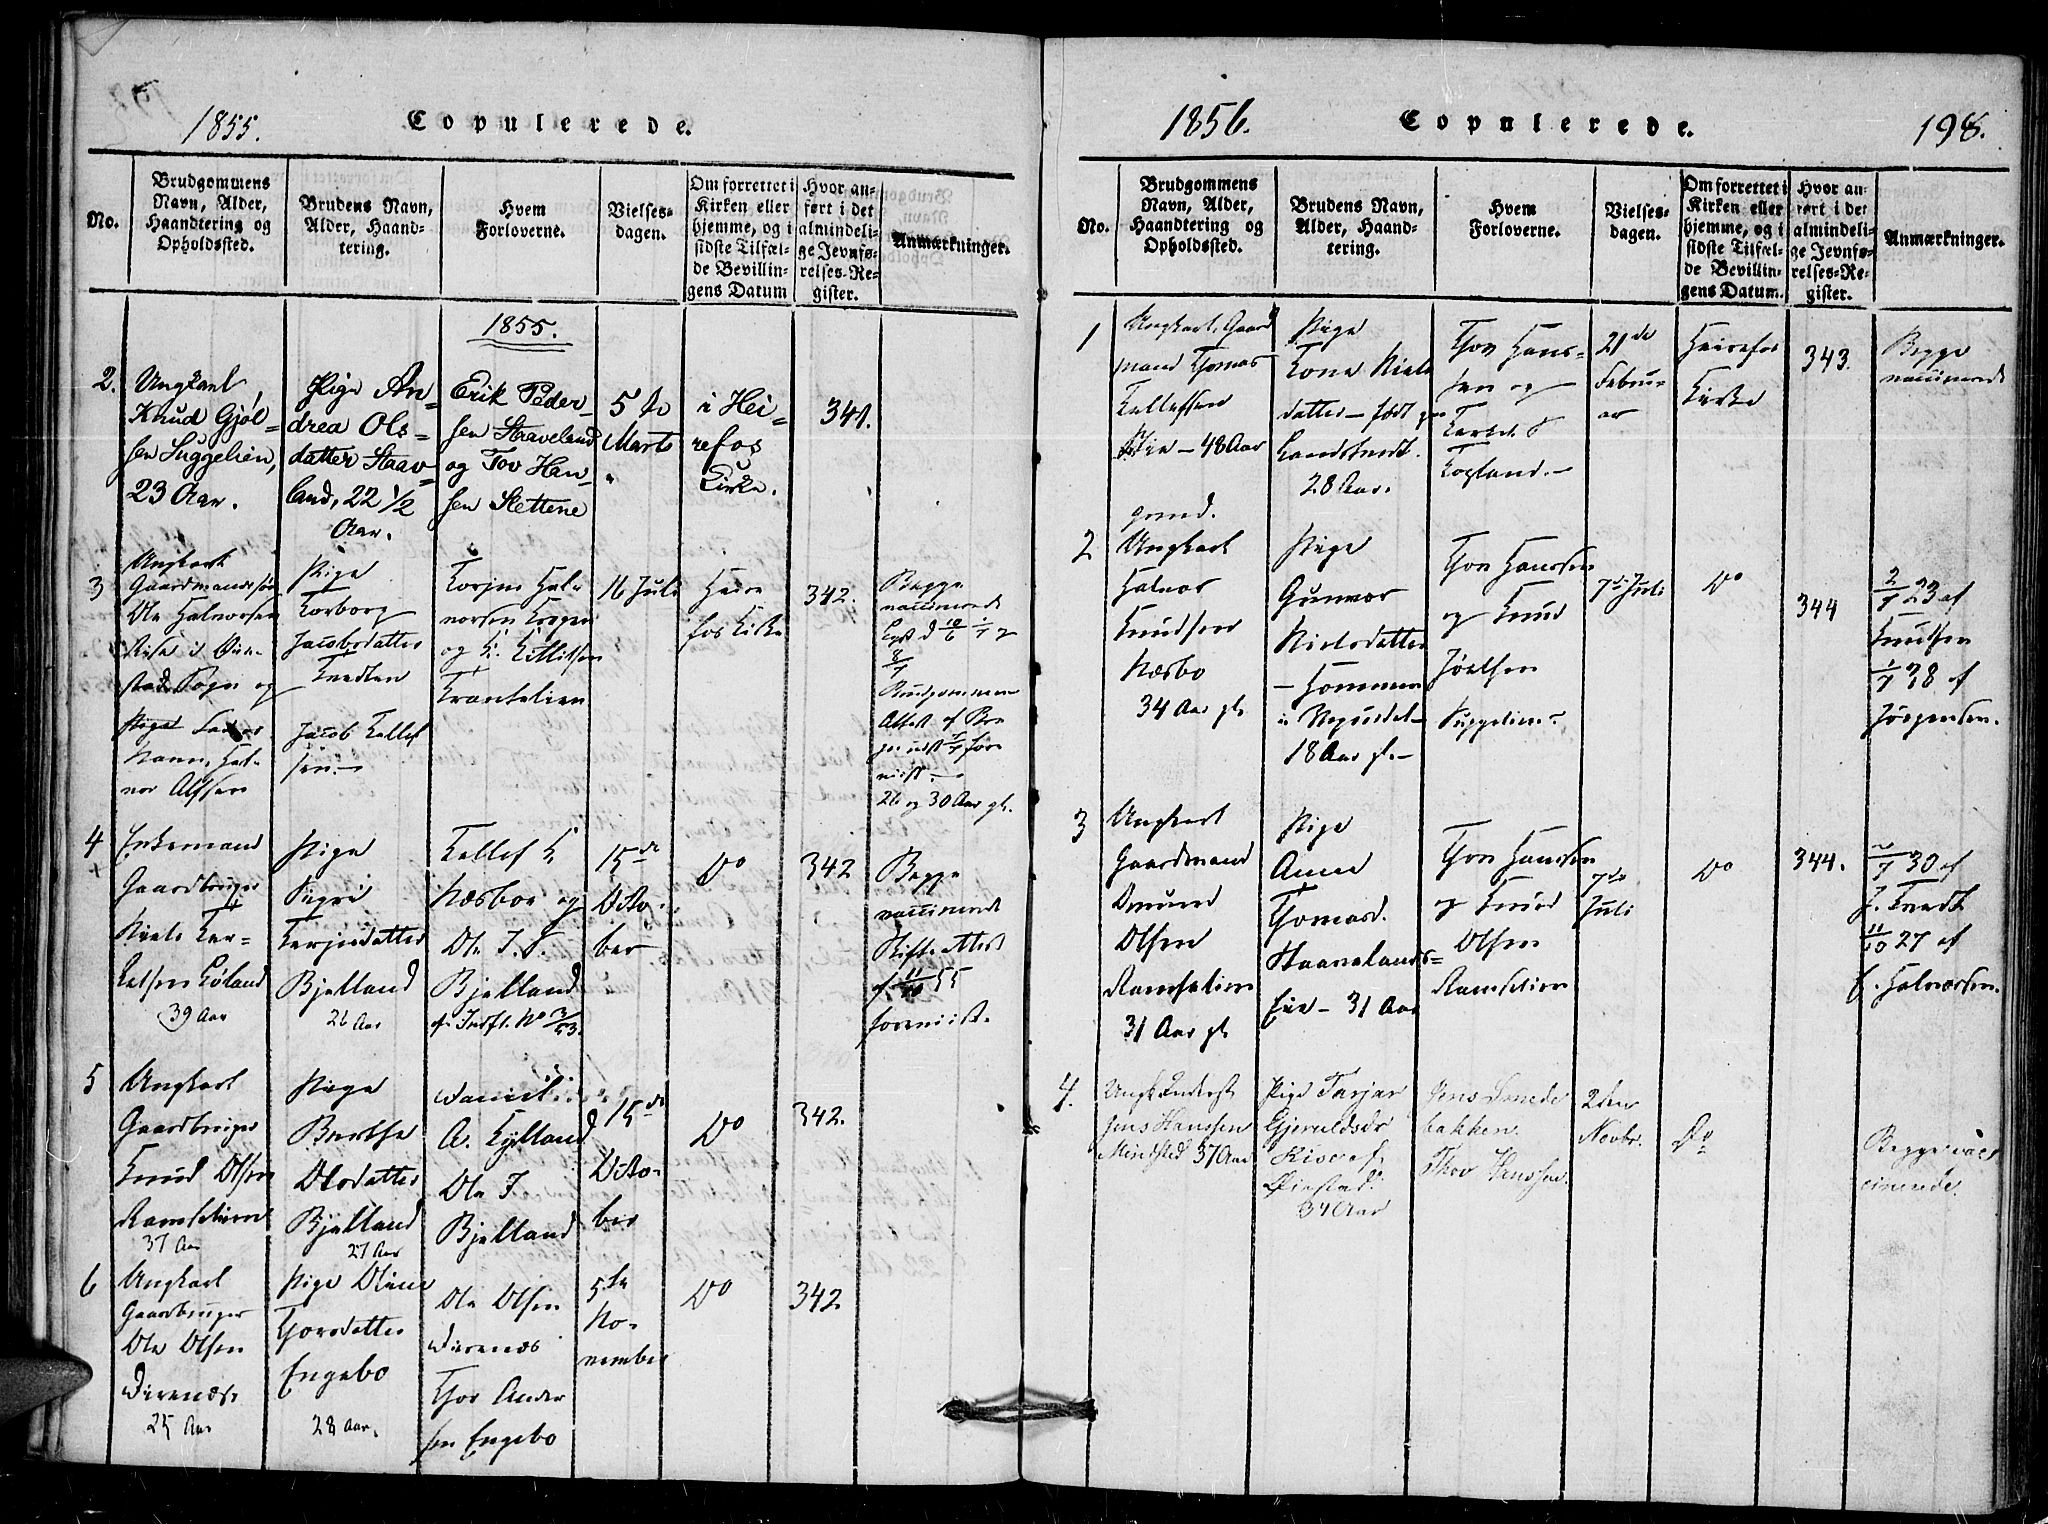 1855.
Copulerede.
No.
Brudgommens
Navn, Alder,
Haandtering og
Opholdssted.
Brudens Navn,
Alder, Haand-
tering.
Hvem
Forloverne.
Vielses-
dagen.
Om forrettet i
Kirken eller
hjemme, og i
sidste Tilfæl-
de Bevillin-
gens Datum
Hvor an-
ført i det
almindeli-
ge Jevnfø-
relses-Re-
gister.
Anmærkninger.
1855.
2.
Ungkarl
Knud Gjøl-
sen Suggelien,
23 Aar.
Pige An-
drea Ols-
datter Staav-
land, 22 1/2
Aar.
Erik Peder-
sen Staaveland
og Tov Han-
sen Slettene
5te
Marts
i Hei-
refos
Kirke.
341.
3
Ungkarl
Gaardmandssøn
Ole Halvorsen
Rise i Øie-
stad Sogn og
Navn, Hal-
vor Alfsen
Pige
Torborg
Jacobsdatter
Jacob Tellef
sen
Torjus Hal-
vorsen
og K. Kittilsen
16 Juli
Heire
fos Kirke
342.
Begge
vaccinerede
8/7
Brudgommens
Attest af
26 og 30 Aar gl.
4
Enkemand
Gaardbruger
Niels Ter-
kelsen
39 Aar
Pige
Sigri
Terjesdatter
Bjelland
26 Aar
Tellef K.
Næsbo og
Ole J. S.
Bjelland
15de
Octo-
ber
Do
342
Begge
vaccinerede
Skifteattest
af 11/10 55
forevist.
5
Ungkarl
Gaardbruger
Knud Olsen
Ramselien
37 Aar
Pige
Berthe
Olsdatter
Bjelland
27 Aar
Daniel
A. Kylland
Ole J
Bjelland
15de
Octo-
ber
Do
342.
6
Ungkarl
Gaardbruger
Ole Olsen
Direnæs
25 Aar
Pige Oline
Thorsdatter
Engebo
28 Aar.
Ole Olsen
Direnæs
Thor Ander
sen Engebo
5te
No-
vember
Do
342.
1856.
Copulerede.
198.
No.
Brudgommens
Navn, Alder,
Haandtering og
Opholdssted.
Brudens Navn,
Alder, Haand-
tering.
Hvem
Forloverne.
Vielses-
dagen.
Om forrettet i
Kirken eller
hjemme, og i
sidste Tilfæl-
de Bevillin-
gens Datum.
Hvor an-
ført i det
almindeli-
ge Jevnfø-
relses-Re-
gister.
Anmærkninger.
1
Ungkarl, Gaard
mand Thomas
Tellefsen
48 Aar
Pige
Tone Niels
datter - født
28 Aar.
Thov Hans-
sen og
21de
Febru-
ar
Heirefos
Kirke
343.
Begge
vaccinerede
2
Ungkarl
Halvor
Knudsen
Næsbo
34 Aar gl.
Pige
Gunvor
Nielsdatter
18 Aar gl.
Thov Hanssen
og Knud
Joelsen
Suggelien
7de Juli
Do
344
2/7 23 af
Knudsen
1/7 38 af
Jørgensen.
3
Ungkarl
Gaardmand
Omund
Olsen
Ramselien
31 Aar gl.
Pige
Anne
Thomasd.
Staavelands-
Eie - 31 Aar
Thov Hanssen
og Knud
Olsen
Ramselien
7de
Juli
Do
344.
30 af
11/10 27 af
Halvorsen.
4.
Jens Hanssen
Mindsted 37 Aar
Pige Tarjer
Gjeruldsdr
Rise af
Øiestad.
34 Aar
Jens Smede
bakken.
Thov Hanssen.
2den
Novbr.
Do
Begge vac
cinerede.